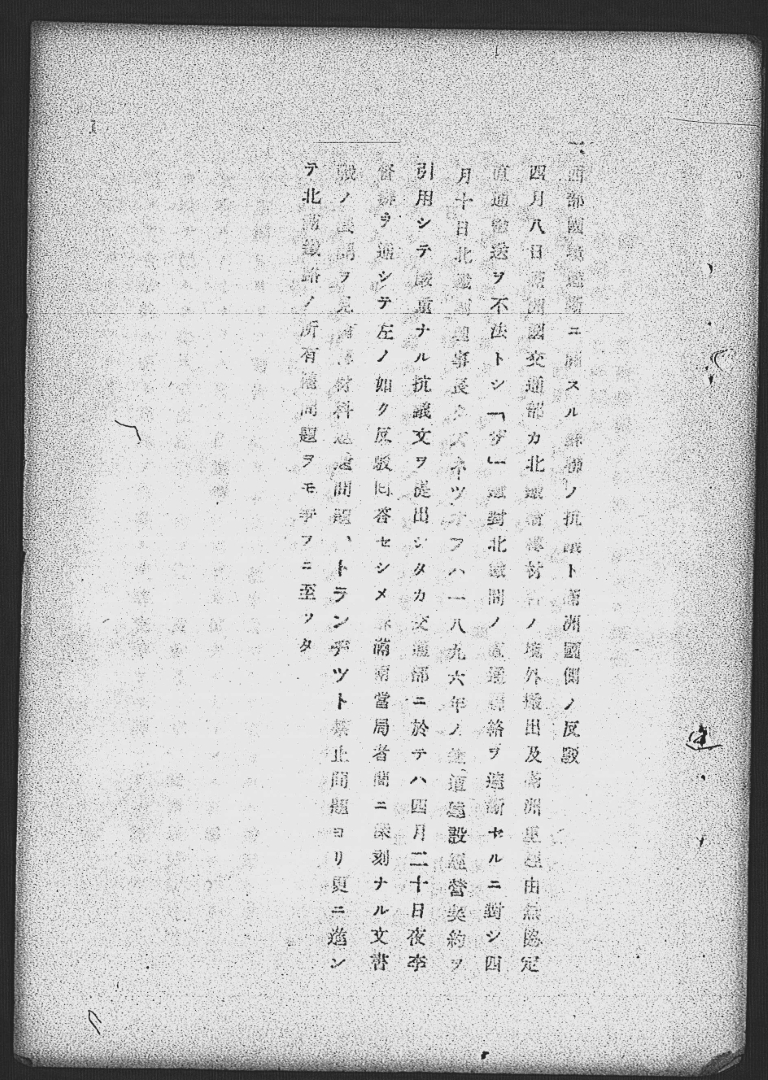 一、西部國境遮斷ニ關スル蘇聯ノ抗議ト滿洲國側ノ反駁
四月八日滿洲國交通部カ北鐵 材 ノ境外搬出及滿洲里經由無協定
直通輸送ヲ不法トシ「ザ」鐵對北鐵間ノ直通連絡ヲ遮斷セルニ對シ四
月十日北鐵副理事長クズネツオフハ一八九六年ノ鐵道建設經營契約ヲ
引用シテ嚴重ナル抗議文ヲ提出シタカ交通部ニ於テハ四月二十日夜李
督辦ヲ通シテ左ノ如ク反駁回答セシメ 滿 當局者間ニ深刻ナル文書
戰ノ展開ヲ見 材料 問題、トランヂツト禁止問題ヨリ更ニ進ン
テ北滿鐵路ノ所有權問題ヲモ爭フニ至ツタ
1